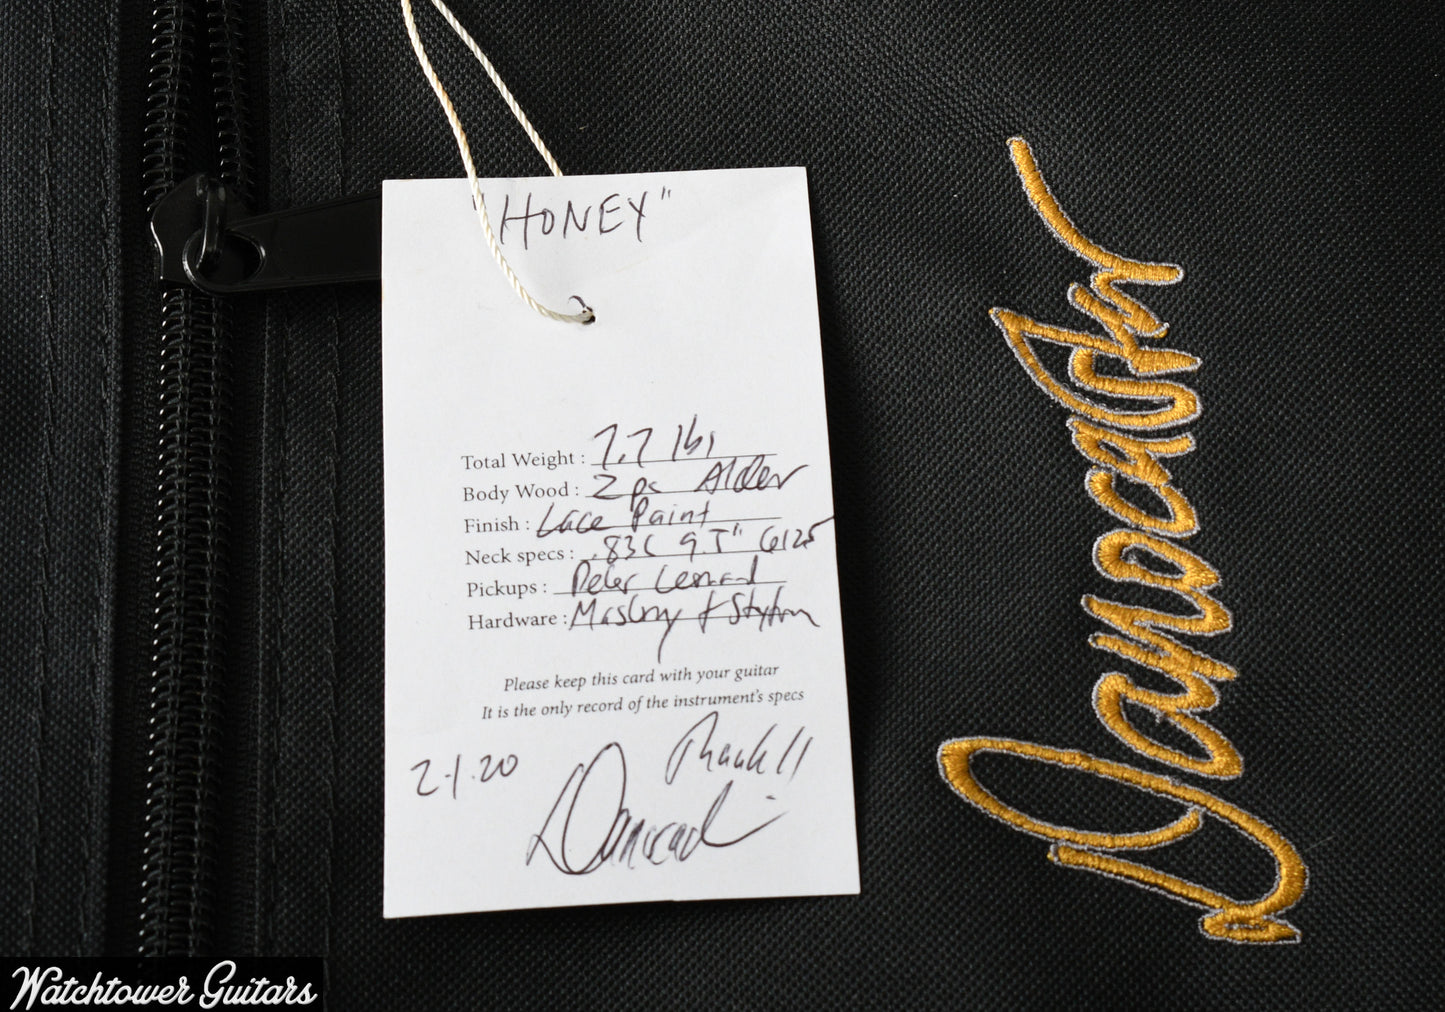 "HONEY"
Total Weight : 7.7 lbs
Body Wood : 2 pc Alder
Finish : Lace Paint
Neck specs : .83C 9.5" 6125
Pickups :
Hardware :
Please keep this card with your guitar
It is the only record of the instrument's specs
2.1.20
Danocaster
Watchtower Guitars